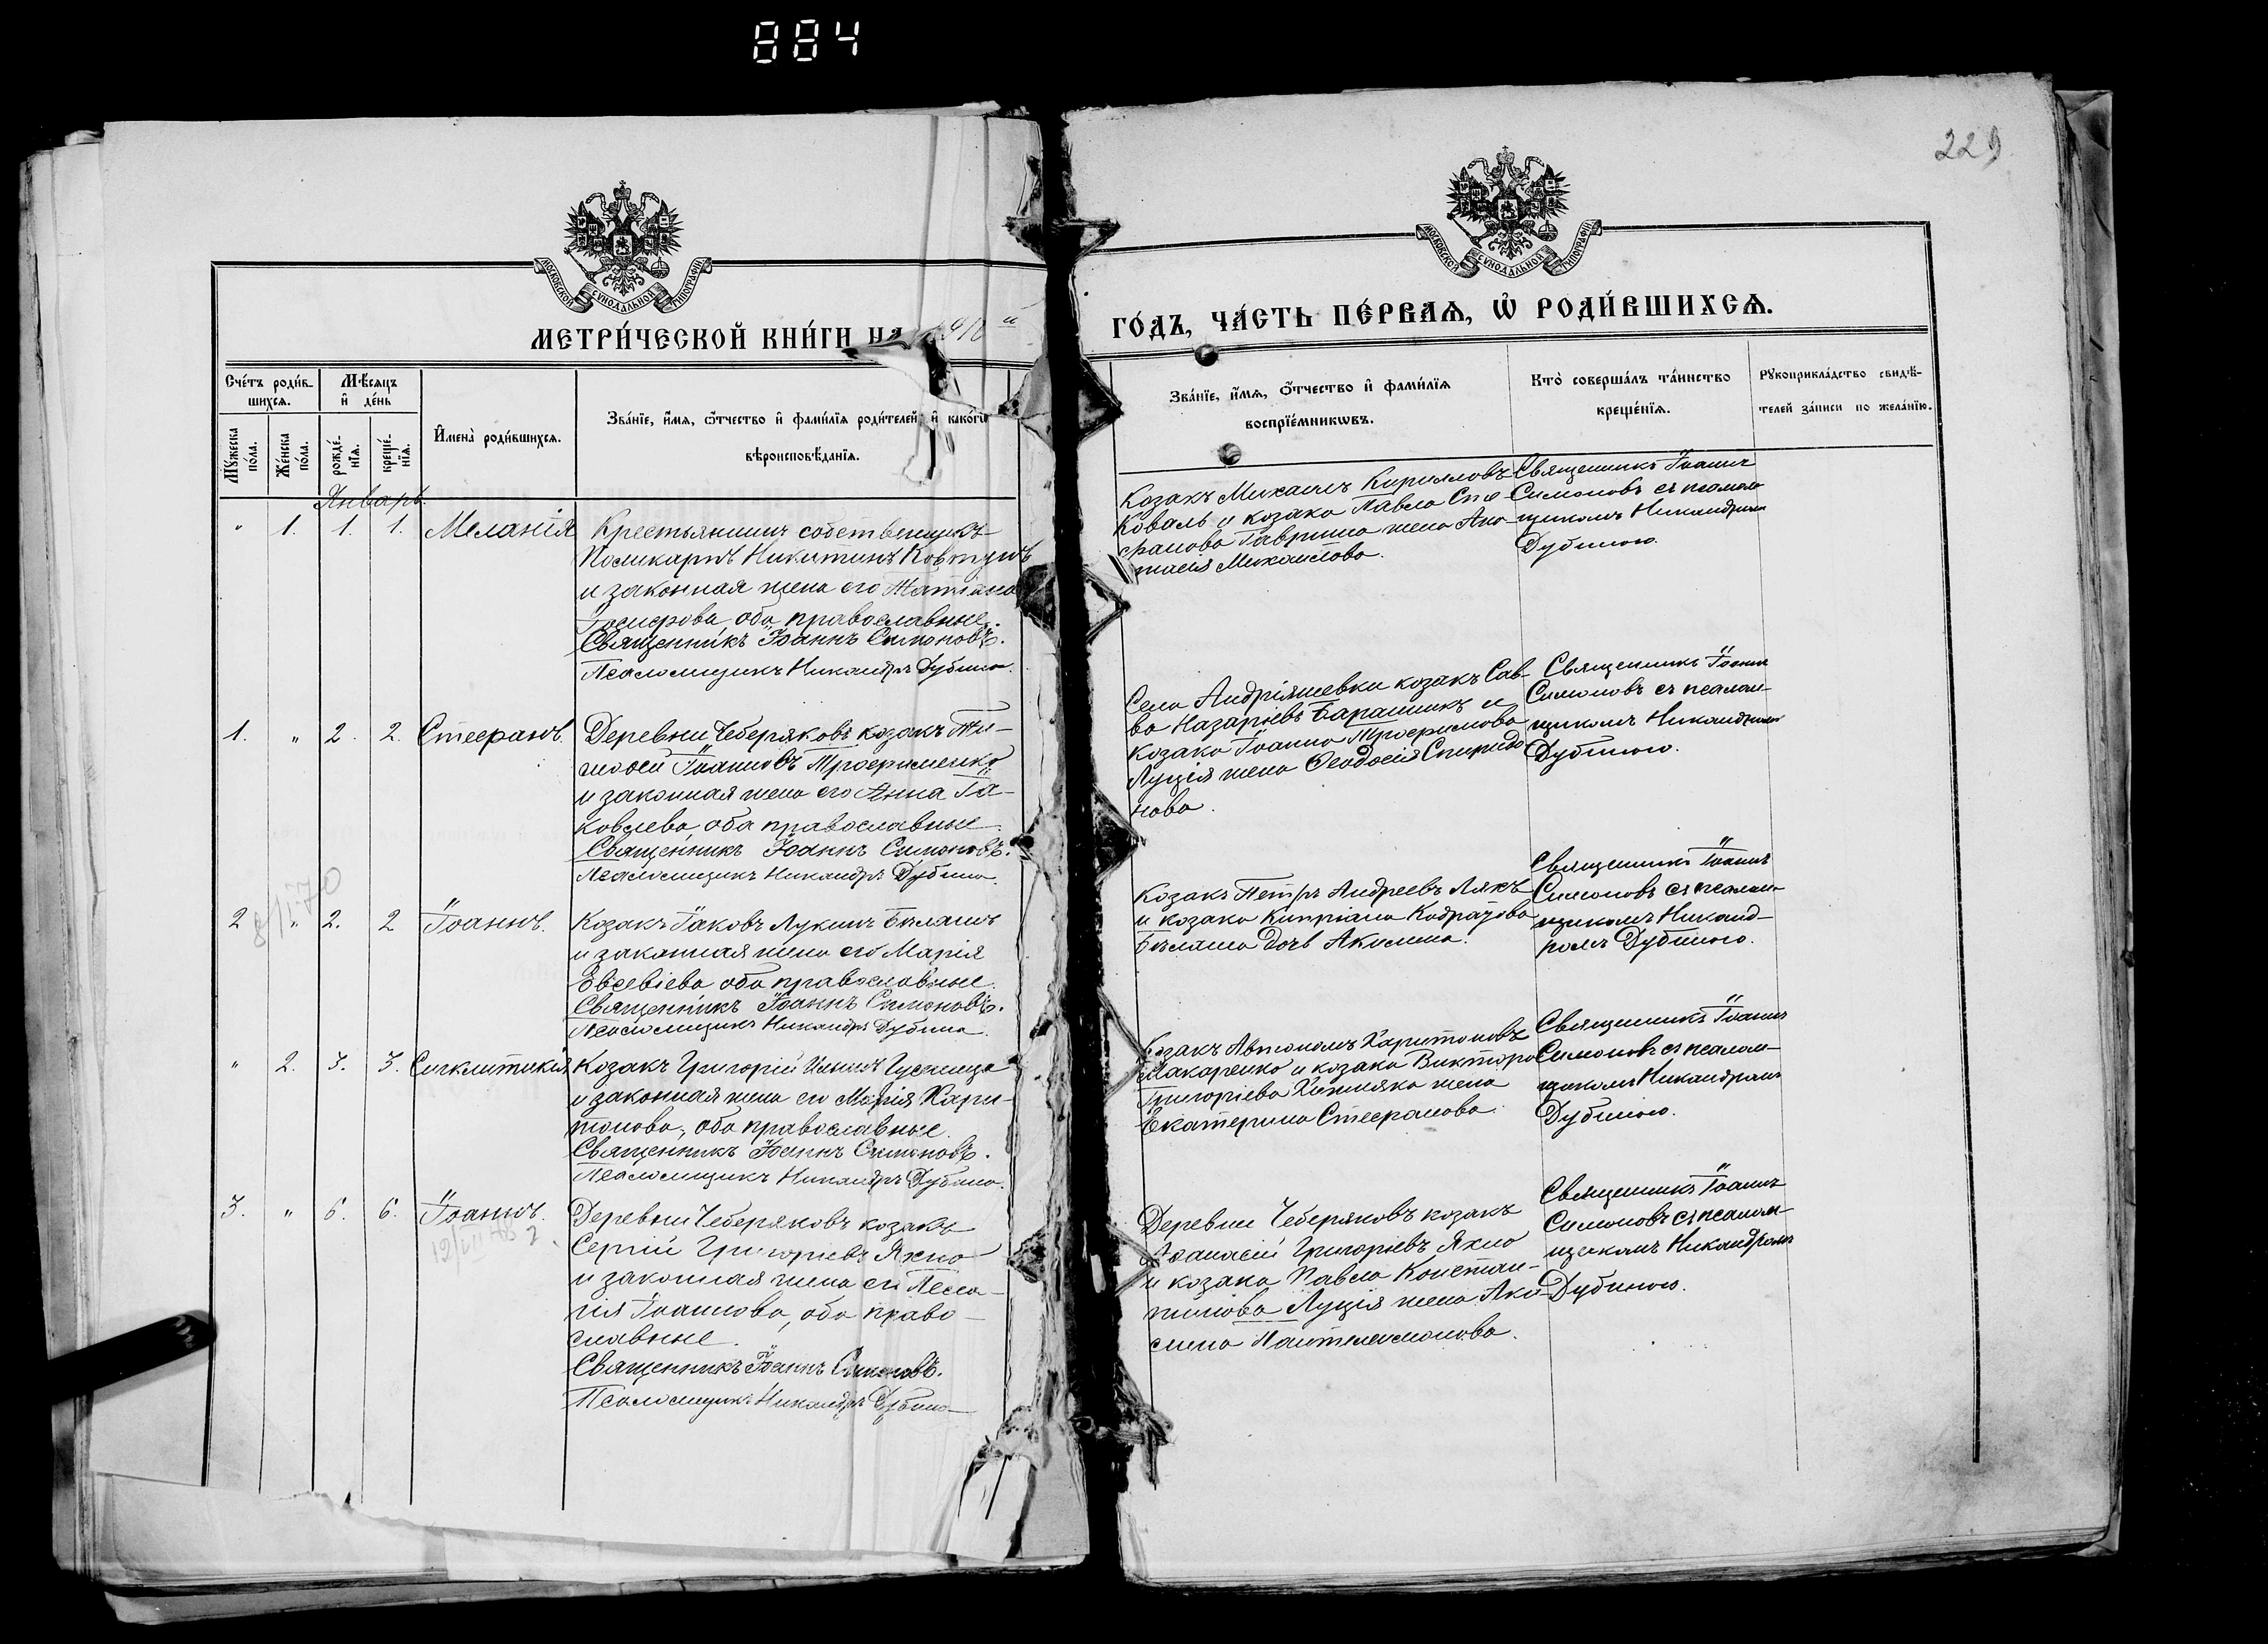 884
229
МОСКОВСКОЙ СѴНОДАЛЬНОЙ ТИПОГРАФІИ
МОСКОВСКОЙ СѴНОДАЛЬНОЙ ТИПОГРАФІИ
МЕТРИ́ЧЕСКОЙ КНИ́ГИ НА
ГО́ДЪ, ЧА́СТЬ ПЕ́РВАѦ, Ѽ РОДИ́ВШИХСѦ.
Сче́тъ роди́в-
шихсѧ.
Мѣ́сѧцъ
и҆ де́нь
Мꙋ́жеска
по́ла.
Же́нска
по́ла.
рожде́-
нїѧ.
креще́-
нїѧ.
И҆мена̀ роди́вшихсѧ.
Зва́нїе, и҆́мѧ, ѻ҆́тчество и҆ фами́лїѧ роди́телей, и҆ како́гѡ
вѣроисповѣ́данїѧ.
Зва́нїе, и҆́мѧ, ѻ҆́тчество и҆ фами́лїѧ
воспрїе́мникѡвъ.
Кто̀ соверша́лъ та́инство
креще́нїѧ.
Рꙋкоприкла́дство свидѣ́-
телей за́писи по жела́нїю.
Январь.
" 1. 1. 1. Меланія
Крестьянинъ собственникъ
Поликарпъ Никитинъ Ковтунъ
и законная жена его Татіана
Іосифова, оба православные.
Священникъ Іоаннъ Симоновъ.
Псаломщикъ Никандръ Дубина.
Козакъ Михаилъ Кирилловъ
Коваль и козака Павла Сте-
фанова Гавриша жена Ана-
тасія Михаилова.
Священникъ Іоаннъ
Симоновъ съ псалом-
щикомъ Никандромъ
Дубиною.
1. " 2. 2. Стефанъ.
Деревни Чеберяковъ козакъ Ти-
моѳей Іоанновъ Трофименко
и законная жена его Анна Іа-
ковлева, оба православные.
Священникъ Іоаннъ Симоновъ.
Псаломщикъ Никандръ Дубина.
Села Андріяшевки козакъ Сав-
ва Назаріевъ Барашникъ и
козака Іоанна Трофимова
Луція жена Ѳеодосія Спиридо
нова.
Священникъ Іоаннъ
Симоновъ съ псалом-
щикомъ Никандромъ
Дубиною.
2 " 2. 2 Іоаннъ.
Козакъ Іаковъ Лукинъ Билашъ
и законная жена его Марія
Евсевіева оба православные.
Священникъ Іоаннъ Симоновъ.
Псаломщикъ Никандръ Дубина.
Козакъ Петръ Андреевъ Ляхъ
и козака Кипріана Кодратова
Бѣлаша дочь Акилина.
Священникъ Іоаннъ
Симоновъ съ псалом-
щикомъ Никанд-
ромъ Дубиною.
" 2. 3. 3. Сигклитикія
Козакъ Григорій Ильинъ Гусеница
и законная жена его Марія Хари-
тонова, оба православные.
Священникъ Іоаннъ Симоновъ.
Псаломщикъ Никандръ Дубина.
Козакъ Автономъ Харитоновъ
Макаренко и козака Виктора
Григоріева Хижняка жена
Екатерина Стефанова.
Священникъ Іоаннъ
Симоновъ съ псалом-
щикомъ Никандромъ
Дубиною.
3. " 6. 6. Іоаннъ.
Деревни Чеберяковъ козакъ
Сергій Григоріевъ Яхно
и законная жена его Пела-
гія Іоаннова, оба право-
славные.
Священникъ Іоаннъ Симоновъ.
Псаломщикъ Никандръ Дубина
Деревни Чеберяковъ козакъ
Аѳанасій Григоріевъ Яхно
и козака Павла Констан-
тинова Луція жена Аки-
лина Пантелеимонова.
Священникъ Іоаннъ
Симоновъ съ псалом-
щикомъ Никандромъ
Дубиною.